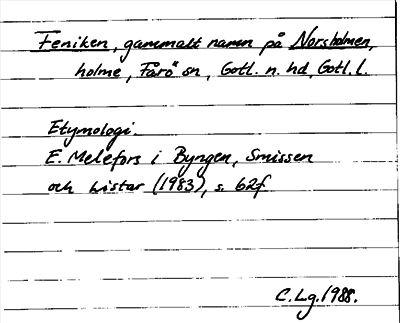 Feniken, gammalt namn på Norsholmen,
holme, Fårö sn, Gotl. n. hd, Gotl. l.
Etymologi.
E. Melefors i Byngen, Smissen
och Listar (1983), s. 62f
C.Lg. 1988.